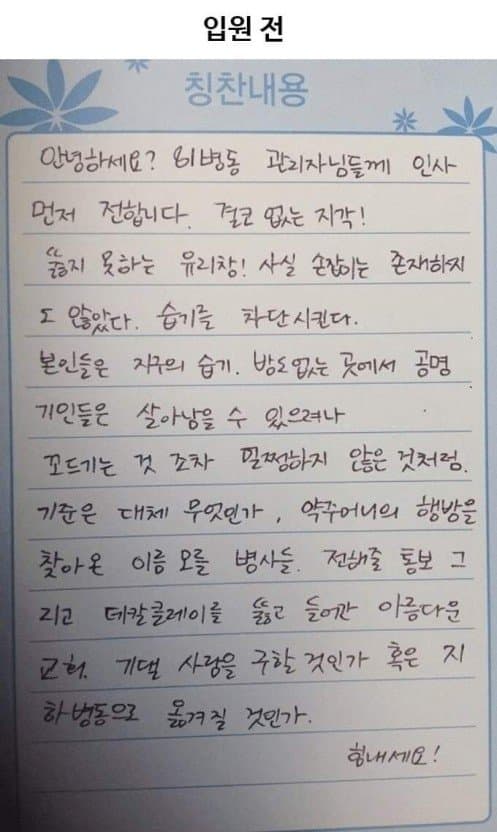 입원 전
칭찬내용
안녕하세요? 81병동 관리자님들께 인사
먼저 전합니다. 결코 없는 지각!
뚫지 못하는 유리창! 사실 손잡이는 존재하지
도 않았다. 습기를 차단시킨다.
본인들은 지구의 습기. 방도없는 곳에서 공명
기인들은 살아남을 수 있으려나
꼬드기는 것 조차 멀쩡하지 않은 것처럼.
기준은 대체 무엇인가, 약주머니의 행방을
찾아온 이름 모를 병사들. 전해줄 통보 그
리고 데칼클레이를 뚫고 들어간 아름다운
교회. 기댈 사람을 구할 것인가 혹은 지
하병동으로 옮겨질 것인가.
힘내세요!